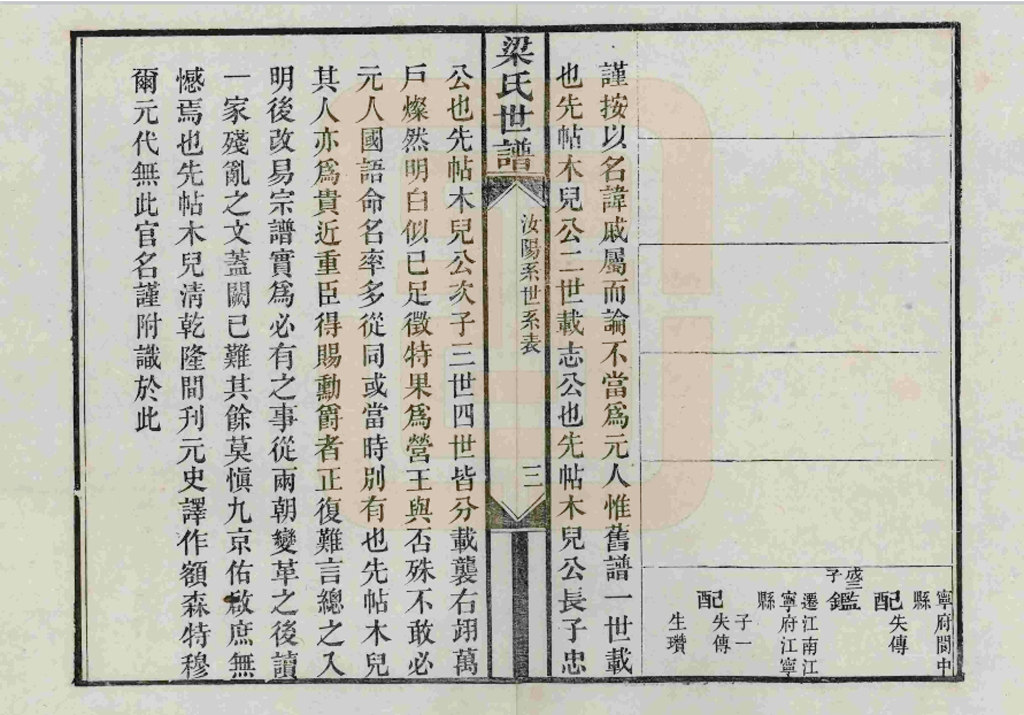 寧府閬中
縣
配失傳
盛三
子
鑑
遷江南江
寧府江寧
縣
子一
配失傳
生瓚
謹按以名諱戚屬而論不當爲元人惟舊譜一世載
也先帖木兒公二世載志公也先帖木兒公長子忠
梁氏世譜
汝陽系世系表
三
公也先帖木兒公次子三世四世皆分載襲右翊萬
戶燦然明白似已足徵特果爲營王與否殊不敢必
元人國語命名率多從同或當時別有也先帖木兒
其人亦爲貴近重臣得賜勳爵者正復難言總之入
明後改易宗譜實爲必有之事從兩朝變革之後讀
一家殘亂之文蓋闕已難其餘莫愼九京佑啟庶無
憾焉也先帖木兒淸乾隆間刊元史譯作額森特穆
爾元代無此官名謹附識於此